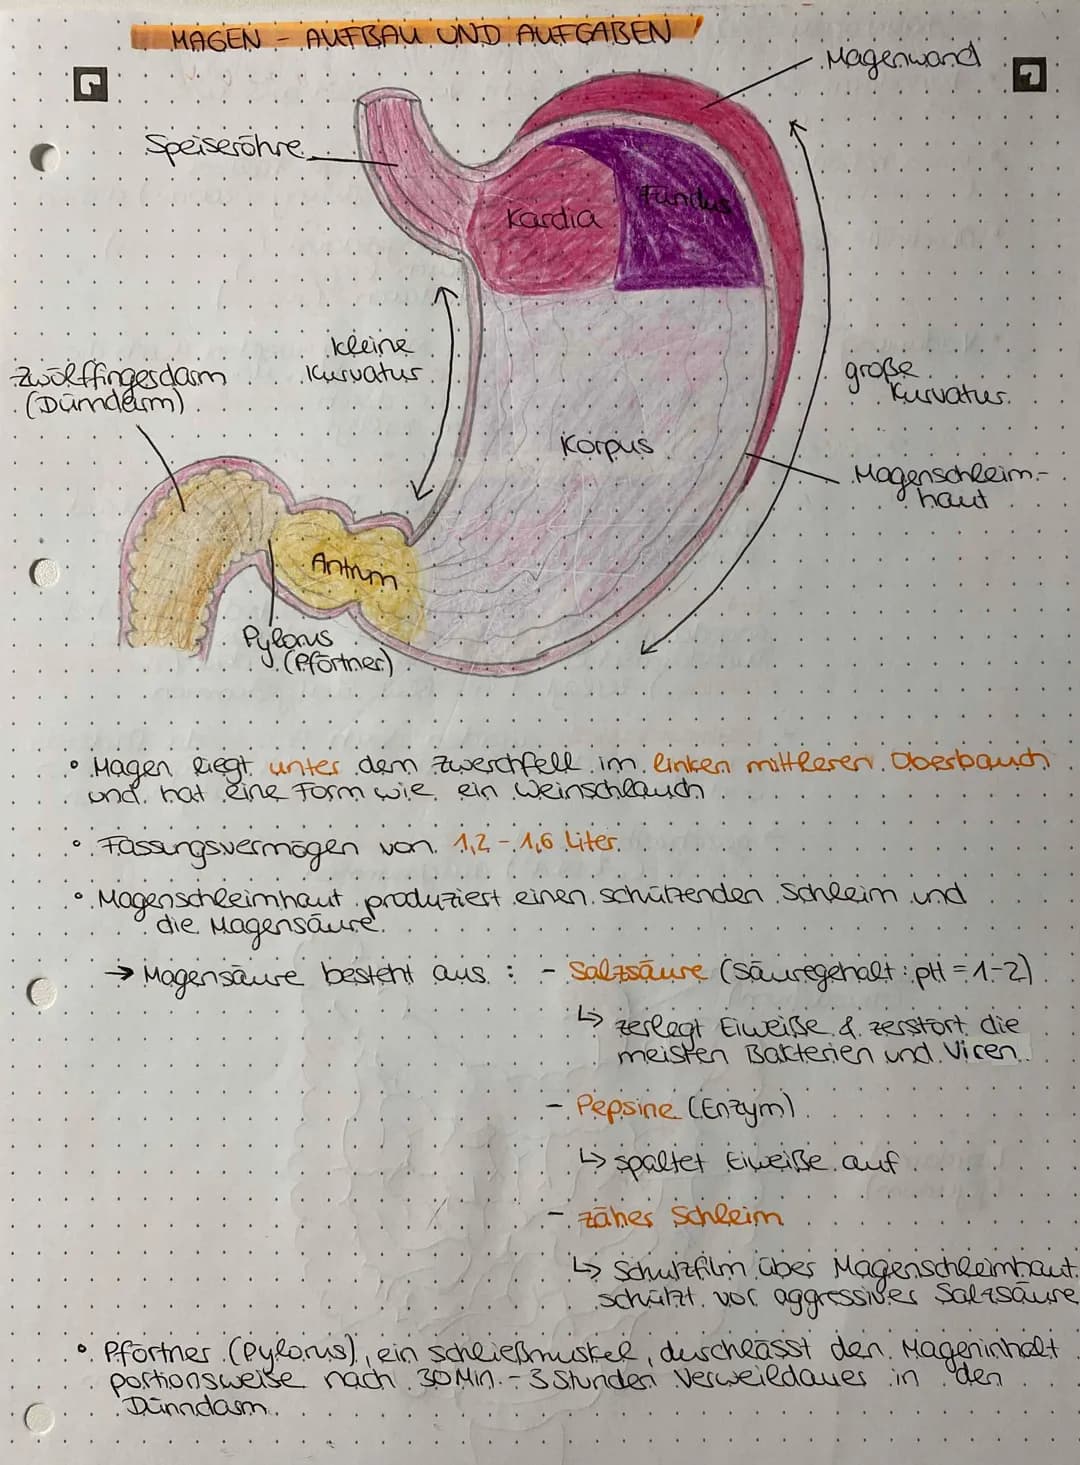 MAGEN - AUFBAU UND AUFGABEN
Magenwand
Speiseröhre
Kardia
Fundus
kleine
Kurvatur
Zwölffingerdarm
(Dünndarm)
große
Kurvatur
Korpus
Magenschleim-
haut
Antrum
Pylorus
(Pförtner)
• Magen liegt unter dem Zwerchfell im linken mittleren Oberbauch
und hat eine Form wie ein Weinschlauch
• Fassungsvermögen von 1,2 - 1,6 Liter
• Magenschleimhaut produziert einen schützenden Schleim und
die Magensäure
→ Magensäure besteht aus : - Salzsäure (Säuregehalt : pH = 1-2)
↳ zerlegt Eiweiße & zerstört die
meisten Bakterien und Viren
- Pepsine (Enzym)
↳ spaltet Eiweiße auf
- zäher Schleim
↳ Schutzfilm über Magenschleimhaut
schützt vor aggressiver Salzsäure
• Pförtner (Pylorus), ein Schließmuskel, durchlässt den Mageninhalt
portionsweise nach 30 Min. - 3 Stunden Verweildauer in den
Dünndarm.